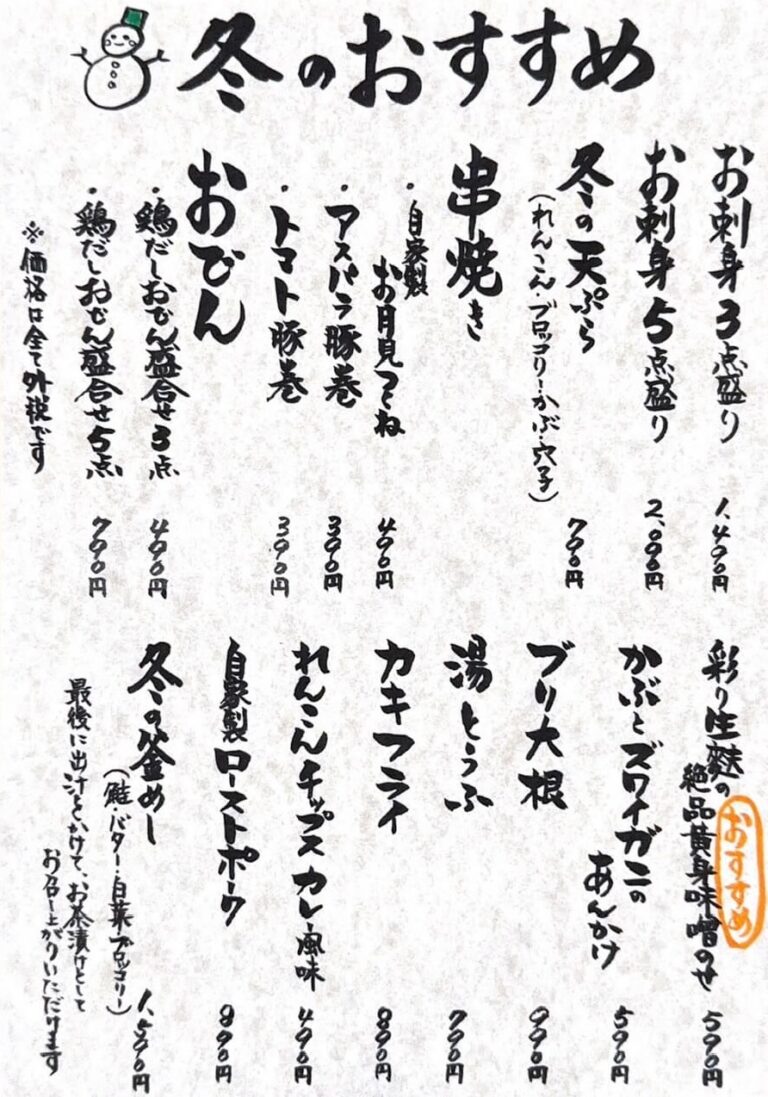 冬のおすすめ
お刺身3点盛り 1,490円
お刺身5点盛り 2,090円
冬の天ぷら
(れんこん・ブロッコリー・かぶ・穴子) 790円
串焼き
・自家製
お月見つくね 490円
・アスパラ豚巻 390円
・トマト豚巻 390円
おでん
・鶏だしおでん盛合せ3点 490円
・鶏だしおでん盛合せ5点 790円
※価格は全て外税です
おすすめ
彩り生麩の
絶品黄身味噌のせ 590円
かぶとズワイガニの
あんかけ 590円
ブリ大根 990円
湯とうふ 790円
カキフライ 890円
れんこんチップスカレー風味 490円
自家製ローストポーク 890円
冬の釜めし
(鮭・バター・白菜・ブロッコリー) 1,590円
最後に出汁をかけて、お茶漬けとして
お召し上がりいただけます